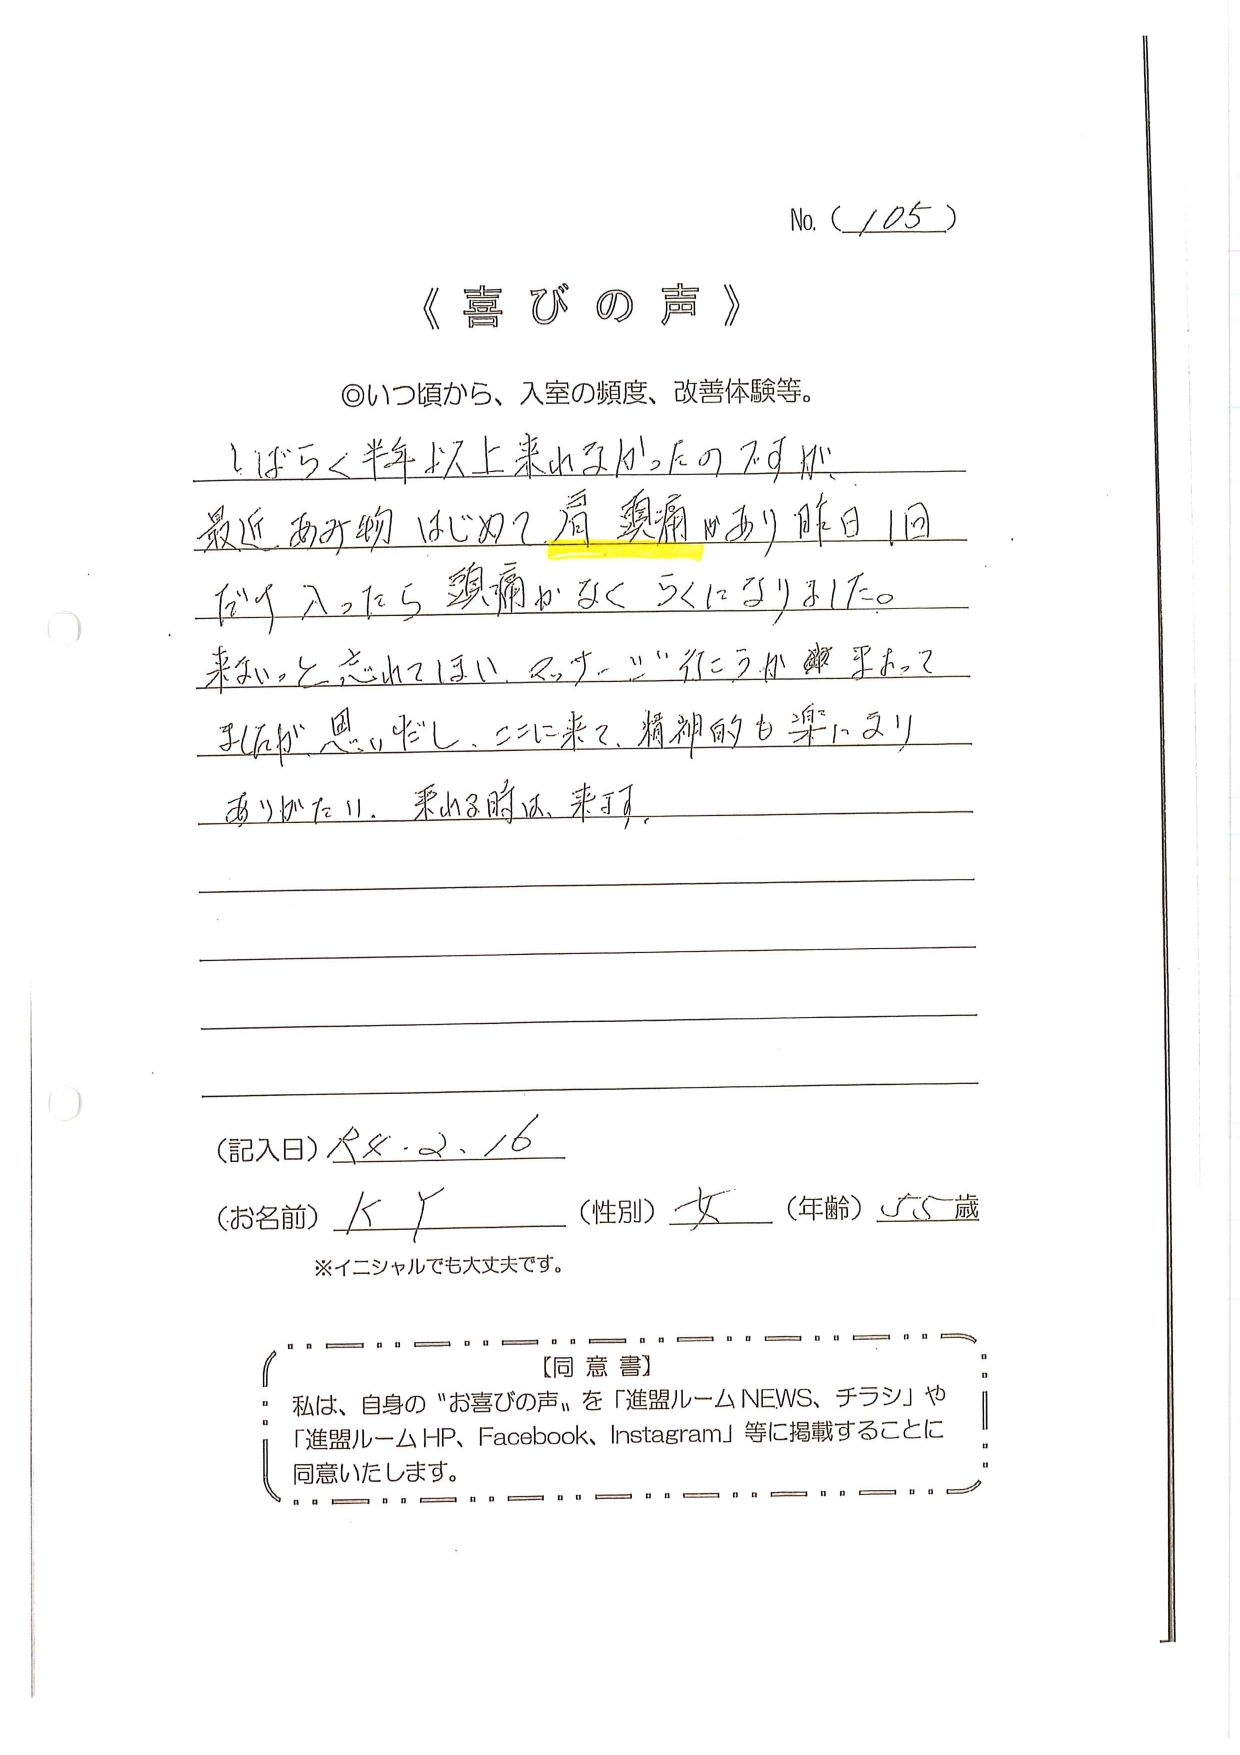 No.（105）
《喜びの声》
◎いつ頃から、入室の頻度、改善体験等。
しばらく半年以上来れなかったのですが、
最近、あみ物はじめて、肩 頭痛があり昨日1回
だけ入ったら頭痛がなくらくになりました。
来ないっと忘れてしまい、マッサージ行こうか まよって
ましたが、思いだし、ここに来て、精神的も楽になり
ありがたい。来れる時は、来ます。
（記入日）R4.2.16
（お名前）K Y （性別）女 （年齢）55歳
※イニシャルでも大丈夫です。
【同意書】
私は、自身の〝お喜びの声〟を「進盟ルームNEWS、チラシ」や
「進盟ルームHP、Facebook、Instagram」等に掲載することに
同意いたします。